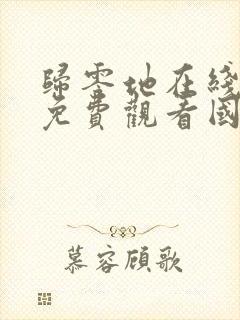 歸零地在綫
免費觀看國
慕容顧歌